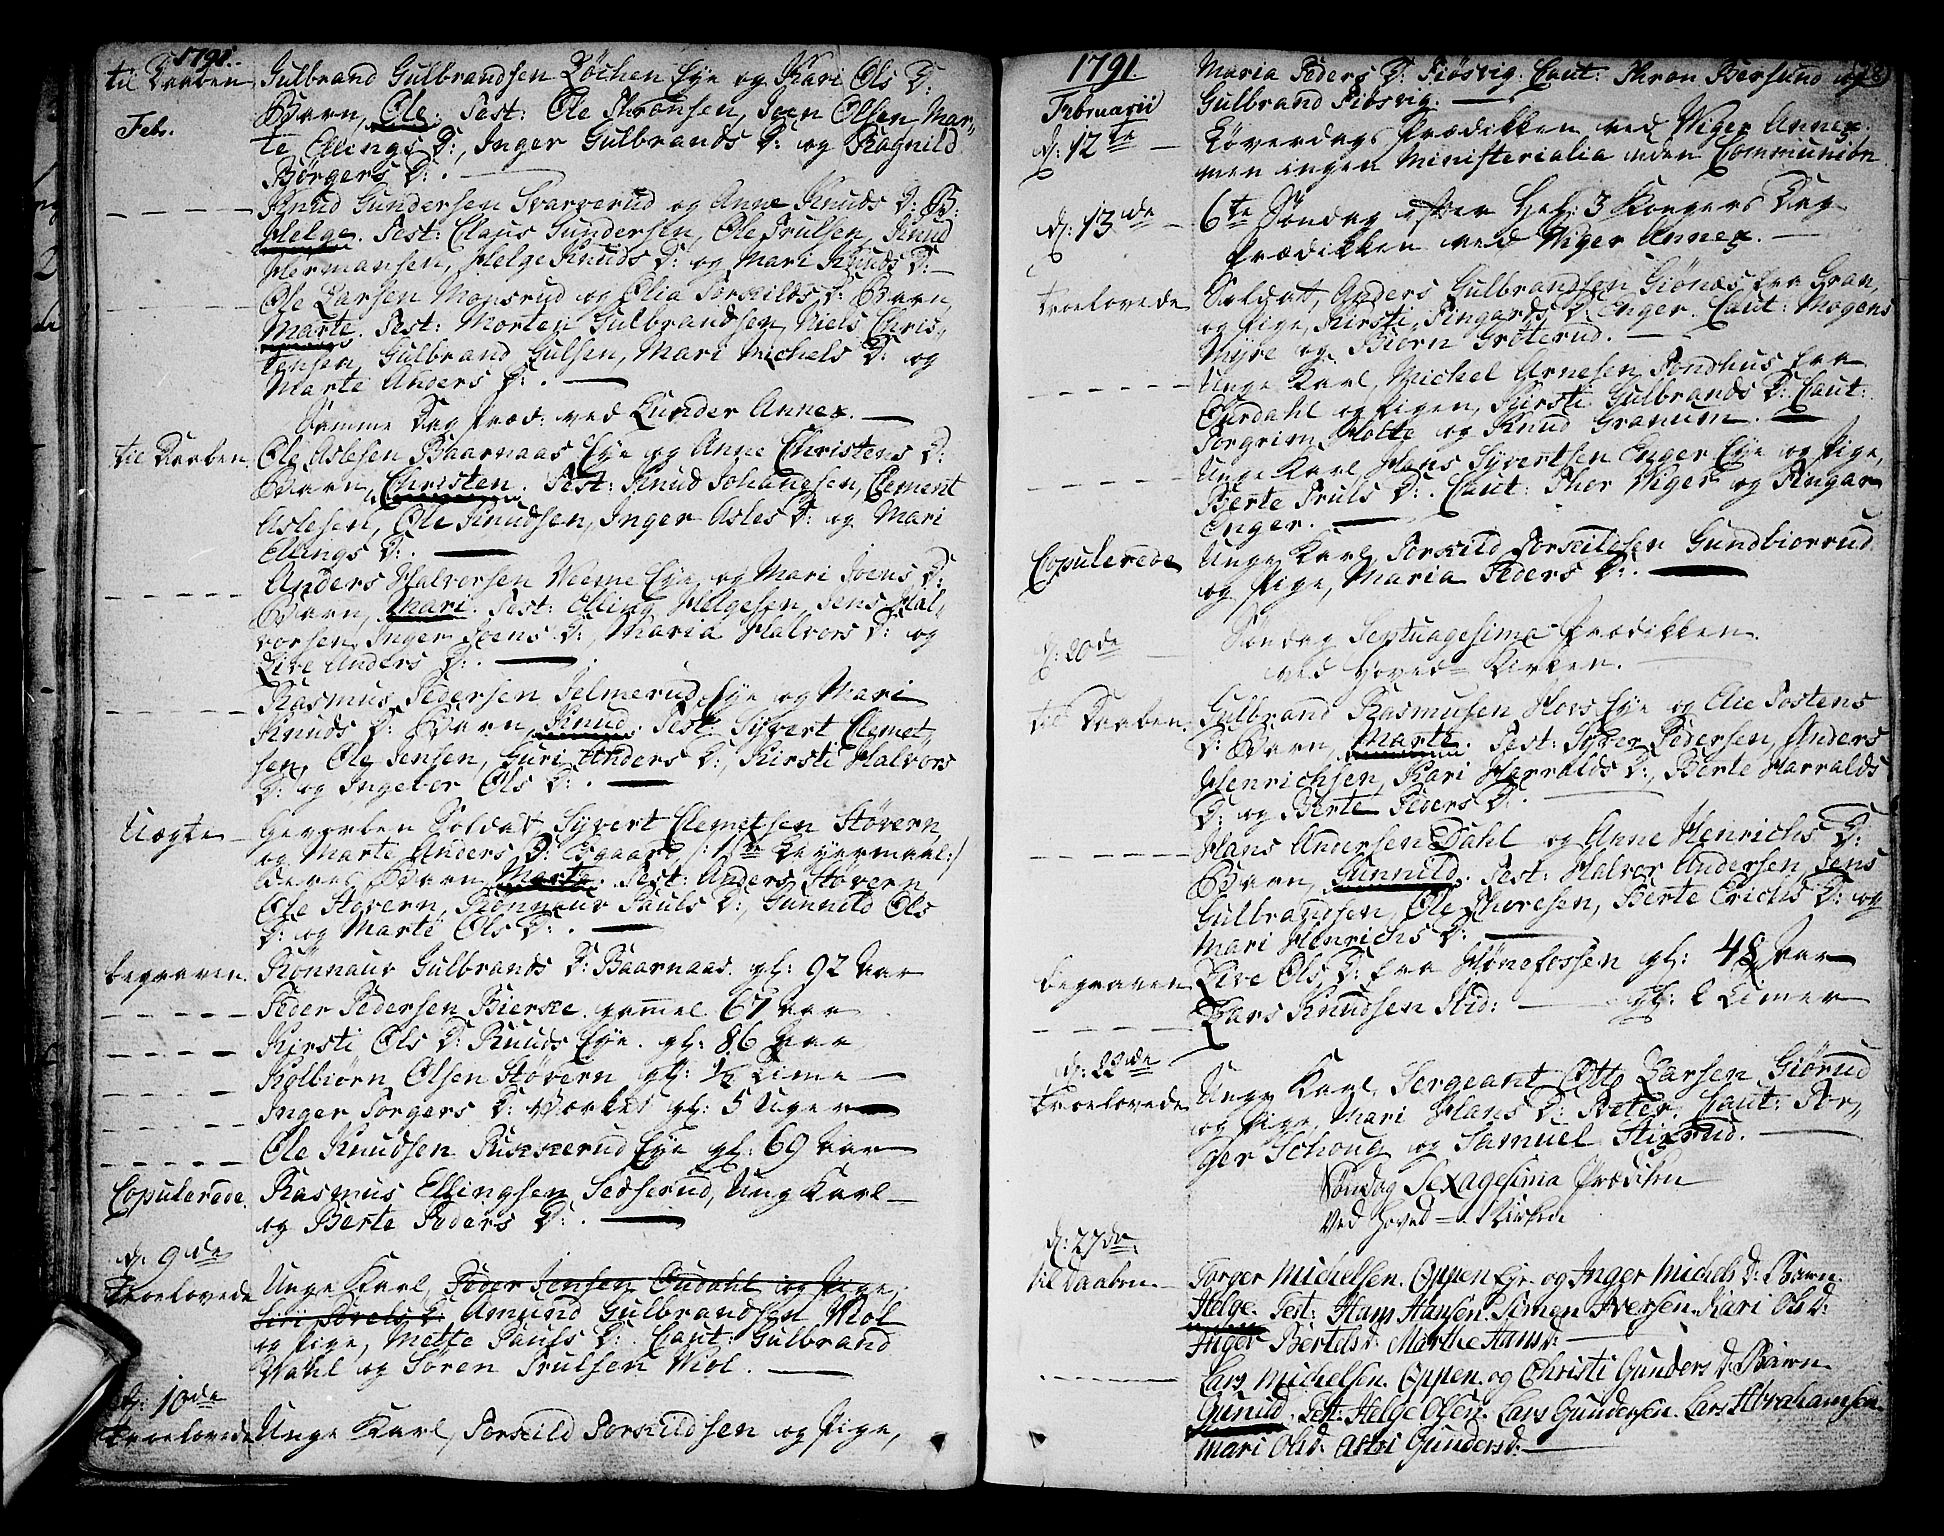 1791.
til Daaben Gulbrand Gulbrandsen Løchen Eye og Kari Ols D:
Feb. Barn, Ole. Test: Ole Thronsen, Iven Olsen, Mar-
te Ellings D:, Inger Gulbrands D: og Ragnild
Børgers D:.
Knud Gundersen Svarverud og Anne Knuds D: B:
Helge. Test: Claus Gundersen, Ole Trulsen, Knud
Hermansen, Helge Knuds D: og Mari Knuds D:
Ole Larsen Monsrud og Olia Torkilds D: Barn,
Marte. Test: Morten Gulbrandsen, Niels Chris-
tensen, Gulbrand Gulsen, Mari Michels D: og
Marte Anders D:.
Samme Dag Præd: ved Lunder Annex.
til Daaben Ole Aslesen Baarnaas Eye og Anne Christens D:
Barn, Christen. Test: Knud Johanesen, Clement
Aslesen, Ole Knudsen, Inger Asles D: og Mari
Ellings D:.
Anders Halvorsen Veeme Eye, og Mari Joens D:
Barn, Mari. Test: Elling Helgesen, Jens Hal-
vorsen, Inger Joens D:, Maria Halvors D: og
Live Anders D:.
Rasmus Pedersen Jelmerud Eye og Mari
Knuds D: Barn, Knud. Test: Syvert Clemet-
sen, Ole Jensen, Guri Anders D:, Kirsti Halvors
D: og Ingebor Ols D:.
Uægte Gevorben Soldat Syvert Clemetsen Støvern
og Marte Anders D: /: 1ste Leyermaal :/
deres Barn, Marte. Test: Anders Støvern,
Ole Støvern, Rønnaug Pauls D:, Gunnild Ols
D: og Marte Ols D:.
begraven Rønnaug Gulbrands D: Baarnaas. gl: 92 Aar
Peder Pedersen Bierke. gammel 67 Aar
Kirsti Ols D: Ruuds Eye. gl: 86 Aar
Kolbiørn Olsen Støvern gl: ½ Time
Inger Torgers D: gl: 5 Uger
Ole Knudsen Pukkerud Eye gl: 69 Aar
Copulerede Rasmus Ellingsen Setserud, Ung Karl
og Berte Peders D:.
d: 9de
Troelovede Unge Karl, Peder Jensen Oudahl og Pige,
Siri Povels D: Amund Gulbrandsen Viol
og Pige, Mette Pauls D:. Caut: Gulbrand
Wahl og Søren Trulsen Viol.
d: 10de
Troelovede Unge Karl, Torkild Torkildsen og Pige,
1791. Maria Peders D: Fiøsvig. Caut: Thron Bersund og
Februarii Gulbrand Fiøsvig.
d: 12te Løverdags Prædikken ved Viger Annex.
men ingen Ministerialia uden Communion
d: 13de 6te Søndag efter Hel: 3 Kongers Dag
Prædikken ved Viger Annex.
Troelovede Soldat, Anders Gulbrandsen Giønæs fra Gran,
og Pige, Kirsti Fingars D: Enger. Caut: Mogens
Myre og Biørn Grøterud.
Unge Karl, Michel Arnesen Tondhus fra
Ourdahl og Pigen, Kirsti Gulbrands D: Caut:
Torgrim Holte og Knud Granum.
Unge Karl Hans Syvertsen Enger Eye og Pige,
Berte Truls D:. Caut: Thor Viger og Fingar
Enger.
Copulerede Unge Karl Torkild Torkildsen Gundbiørrud
og Pige, Maria Peders D:.
d: 20de Søndag Septuagesima Prædikken
ved Hoved-Kirken.
til Daaben Gulbrand Rasmusen Hovs Eye og Elie Tostens
D: Barn, Marte. Test: Syver Pedersen, Anders
Henrichsen, Kari Harralds D:, Berte Harralds
D: og Berte Peders D:.
Hans Andersen Dahl og Anne Henrichs D:
Barn, Gunnild. Test: Halvor Andersen, Jens
Gulbrandsen, Ole Thoresen, Berte Erichs D: og
Mari Henrichs D:
begraven Live Ols D: fra Hønefossen gl: 48 Aar
Lars Knudsen Hid: gl: 2 Timer
d: 22de
Troelovede Unge Karl, Sergeant Otto Larsen Giørud
og Pige, Mari Hans D: Ræter, Caut: Tor-
ger Schoug og Samuel Stixrud.
Søndag Sexagesima Prædiken
Ved Hoved-Kirken
d: 27de
til Daaben. Torger Michelsen. Oppen Ejr. og Inger Michels D: Barn.
Helge. Test: Hans Hansen. Simen Iversen. Kari Ols D:
Inger Bertels D: Marthe Hans D:
Lars Michelsen. Oppen. og Christi Gunders D: Barn.
Gunild, Test: Helge Olsen. Lars Gundersen. Lars Abrahamsen.
Mari Ols D: Astri Gunders D: